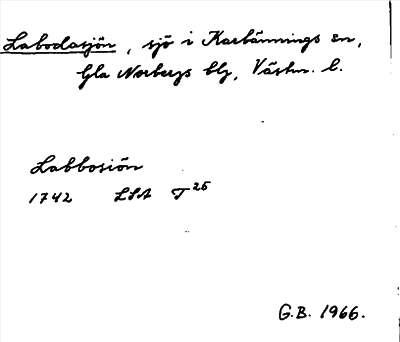 Labodasjön, sjö i Karbennings sn,
Gla Norbergs blg, Västm. l.
Labbosiön
1742 LSA T25
G.B. 1966.